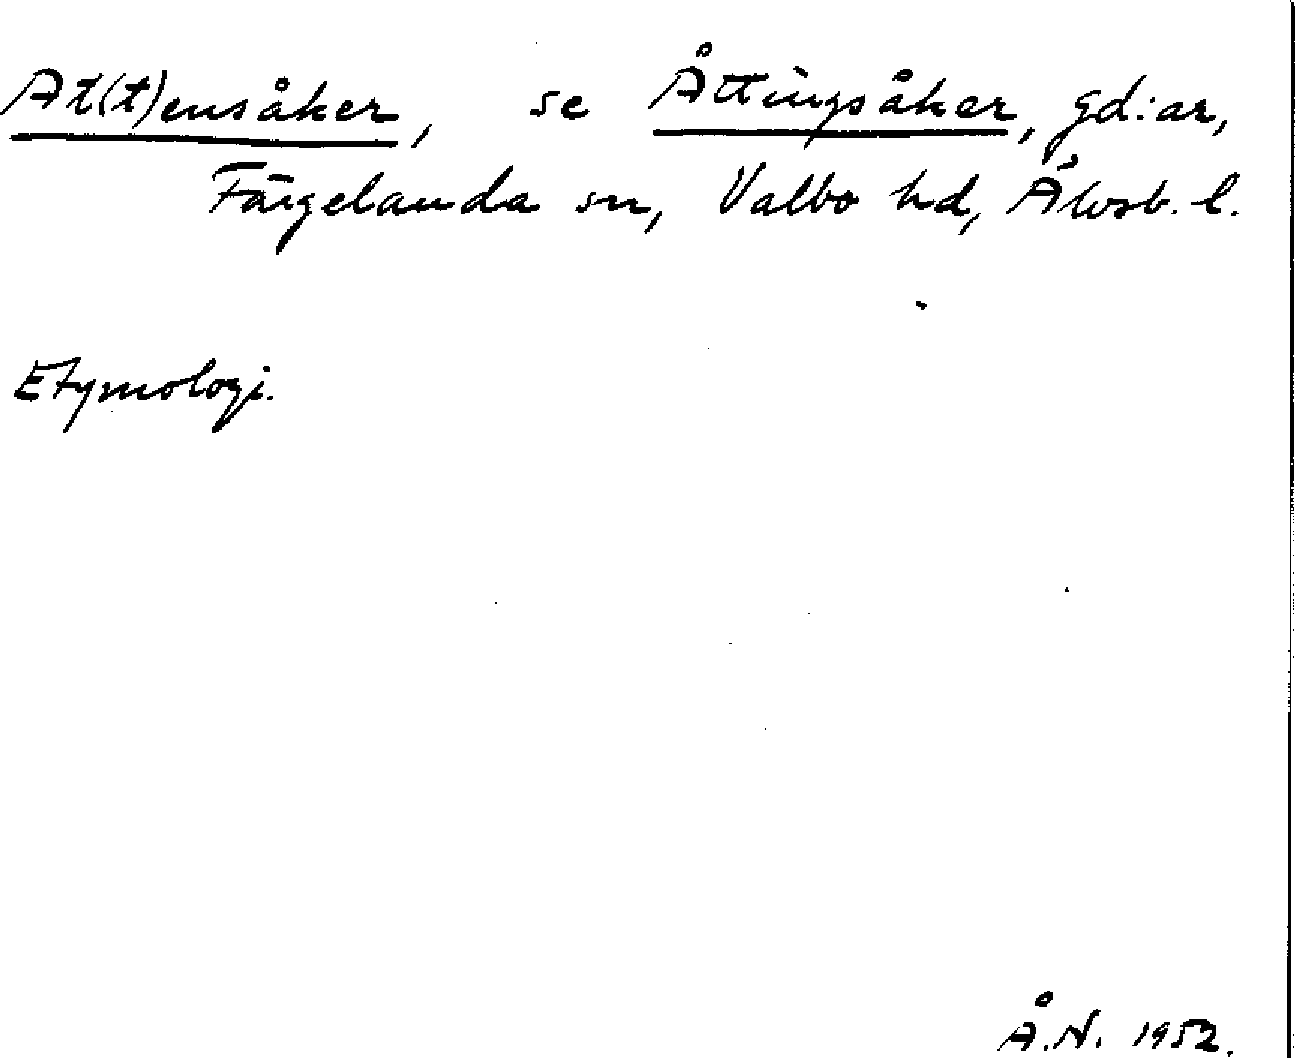 At(t)ensåker, se Åttingsåker, gd:ar,
Färgelanda sn, Valbo hd, Älvsb. l.
Etymologi.
Å.N. 1952.